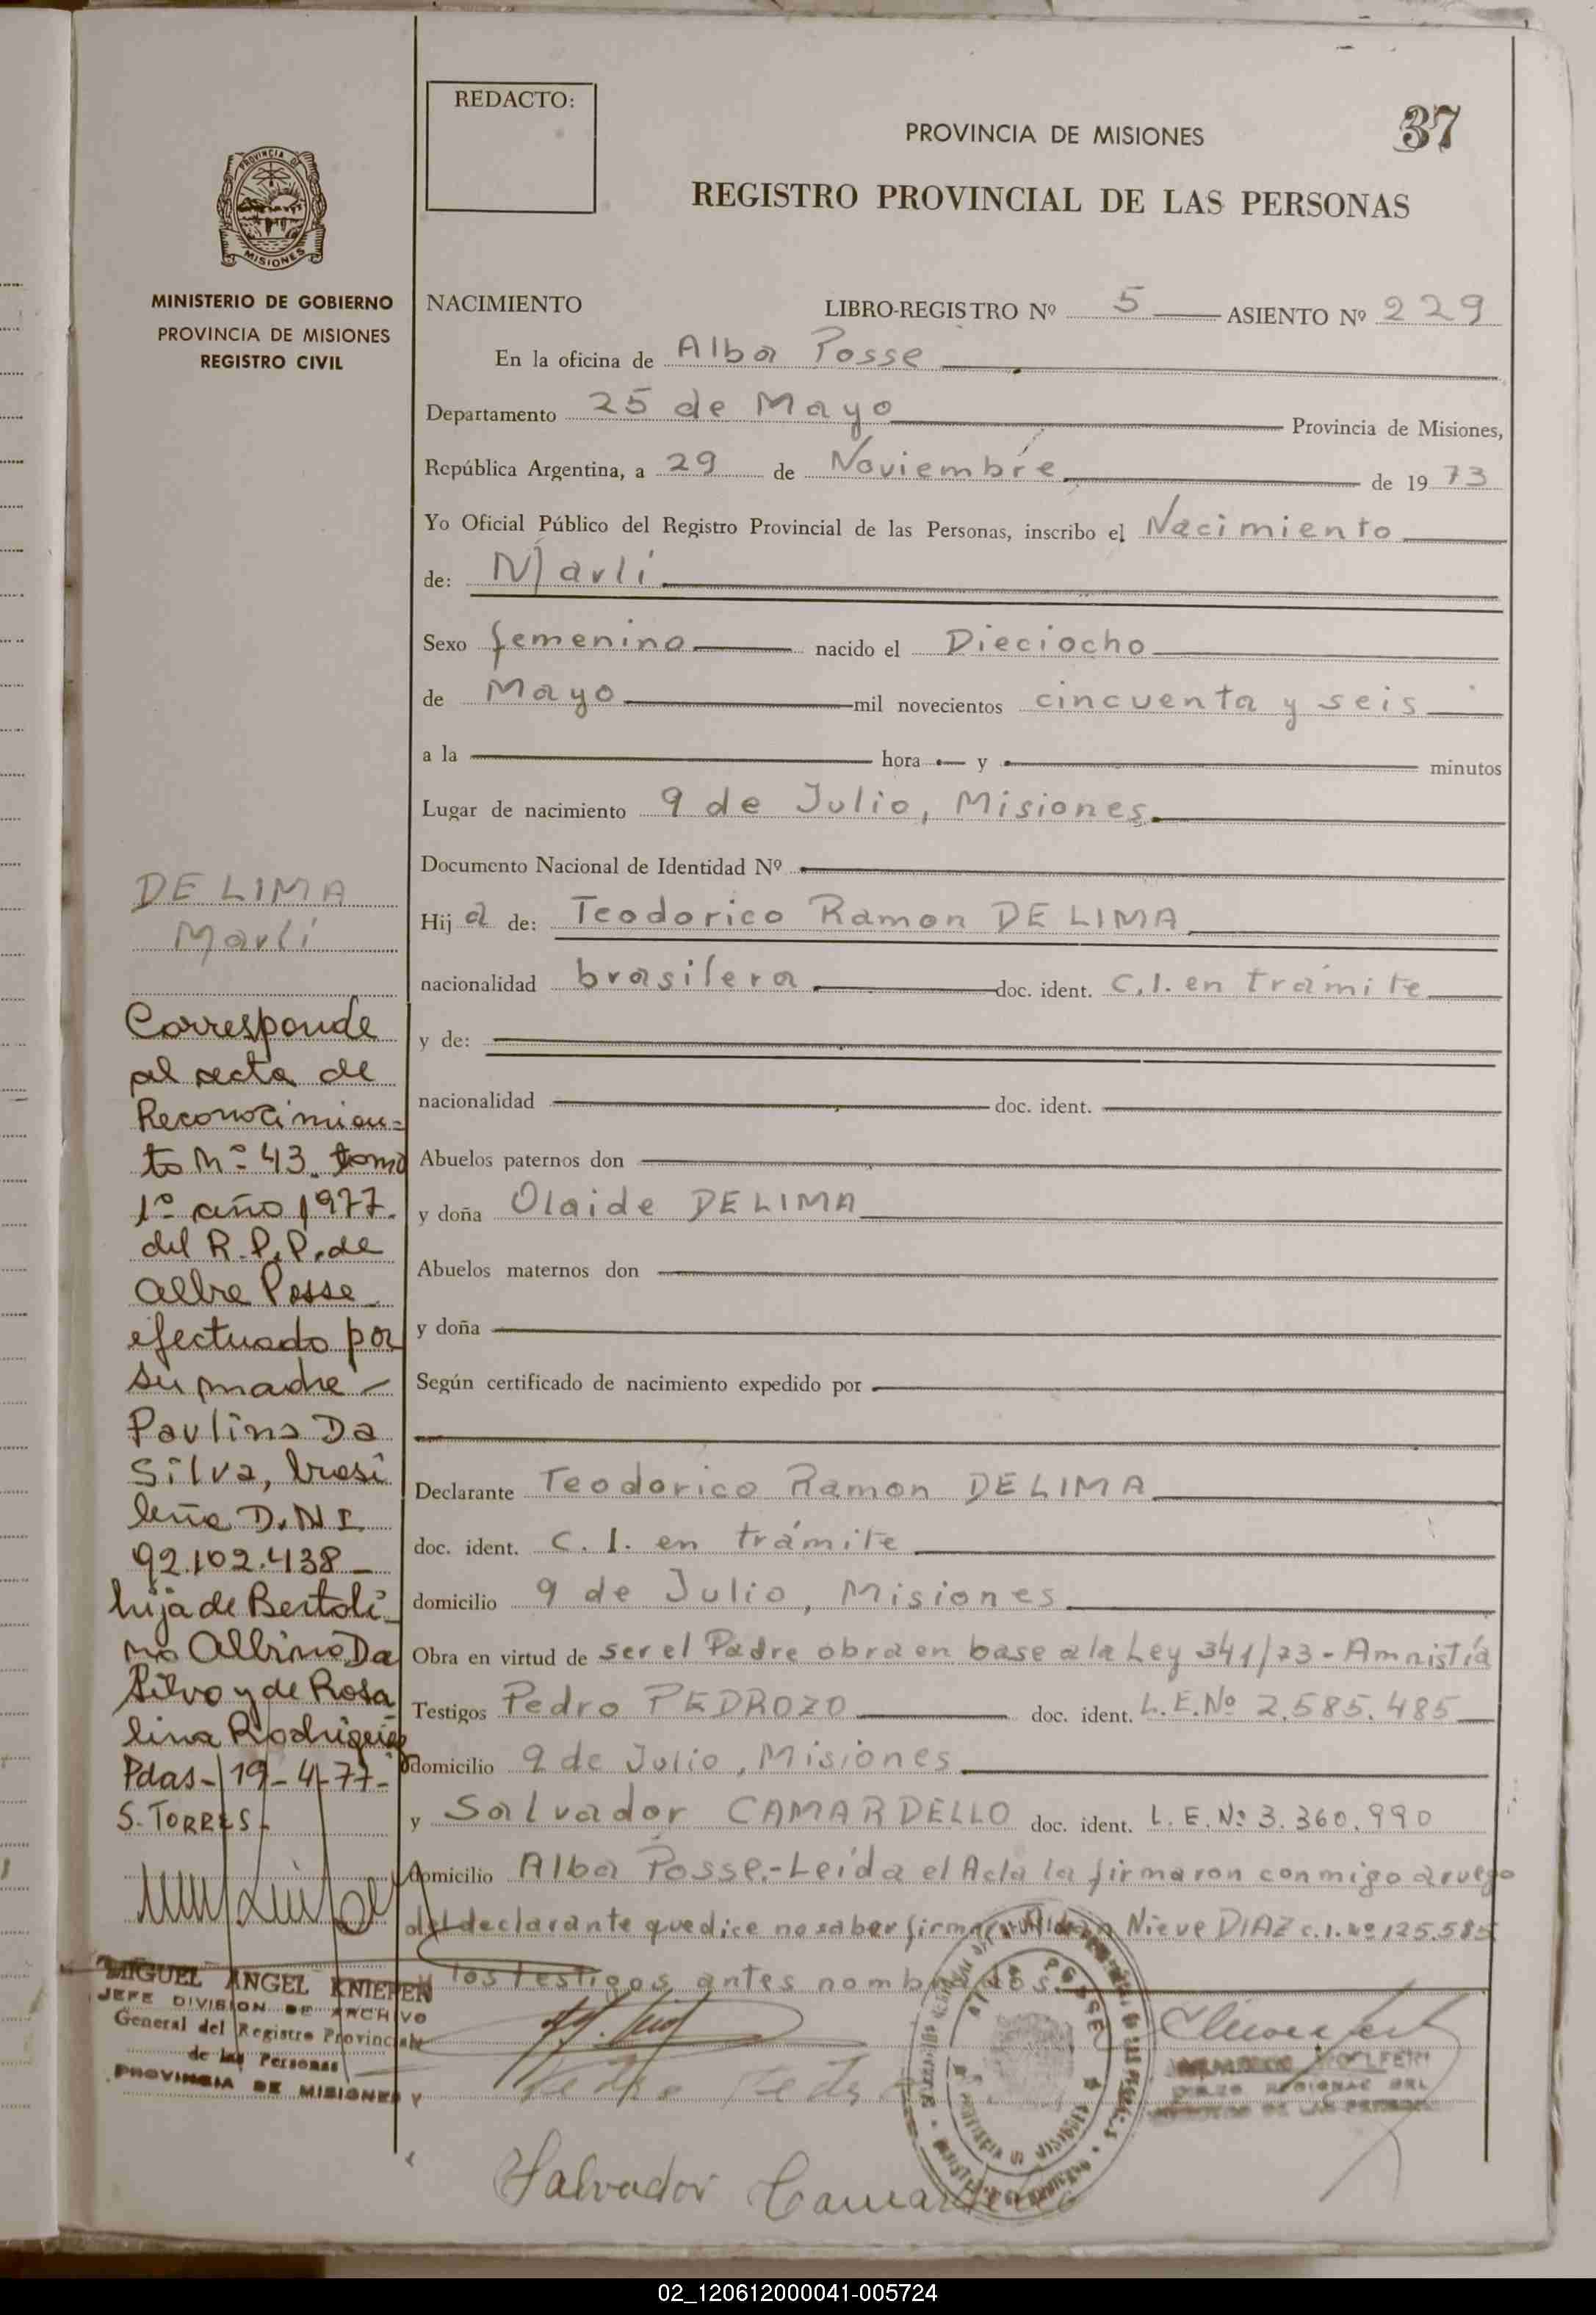 REDACTO:
37
PROVINCIA DE MISIONES
REGISTRO PROVINCIAL DE LAS PERSONAS
PROVINCIA DE
MISIONES
MINISTERIO DE GOBIERNO
PROVINCIA DE MISIONES
REGISTRO CIVIL
NACIMIENTO LIBRO-REGISTRO Nº 5 ASIENTO Nº 229
En la oficina de Alba Posse
Departamento 25 de Mayo Provincia de Misiones,
República Argentina, a 29 de Noviembre de 19 73
Yo Oficial Público del Registro Provincial de las Personas, inscribo el Nacimiento
de: Marli
Sexo femenino nacido el Dieciocho
de Mayo mil novecientos cincuenta y seis
a la hora y minutos
Lugar de nacimiento 9 de Julio, Misiones.
Documento Nacional de Identidad Nº
Hij a de: Teodorico Ramon DE LIMA
nacionalidad brasilera doc. ident. C.I. en trámite
y de:
nacionalidad doc. ident.
Abuelos paternos don
y doña Olaide DE LIMA
Abuelos maternos don
y doña
Según certificado de nacimiento expedido por
Declarante Teodorico Ramon DE LIMA
doc. ident. C. I. en trámite
domicilio 9 de Julio, Misiones
Obra en virtud de ser el Padre obra en base a la Ley 341/73 - Amnistía
Testigos Pedro PEDROZO doc. ident. L.E.Nº 2.585.485
domicilio 9 de Julio, Misiones
y Salvador CAMARDELLO doc. ident. L.E.Nº 3.360.990
domicilio Alba Posse.- Leída el Acta la firmaron conmigo a ruego
del declarante que dice no saber firmar Nieve DIAZ C.I.Nº 125.585
los testigos antes nombrados.
DE LIMA
Marli
Corresponde
al acta de
Reconocimien=
to Nº 43 tomo
1º año 1977.
del R.P.P. de
Alba Posse
efectuado por
su madre -
Paulina Da
Silva, brasi
leña D.N.I.
92.102.438 -
hija de Bertoli
no Albino Da
Silva y de Rosa
lina Rodriguez
Pdas - 19-4-77-
S. TORRES.
MIGUEL ANGEL KNIEPER
JEFE DIVISION DE ARCHIVO
General del Registro Provincial
de las Personas
PROVINCIA DE MISIONES
Pedro
Salvador Camardello
ALBA POSSE
02_120612000041-005724